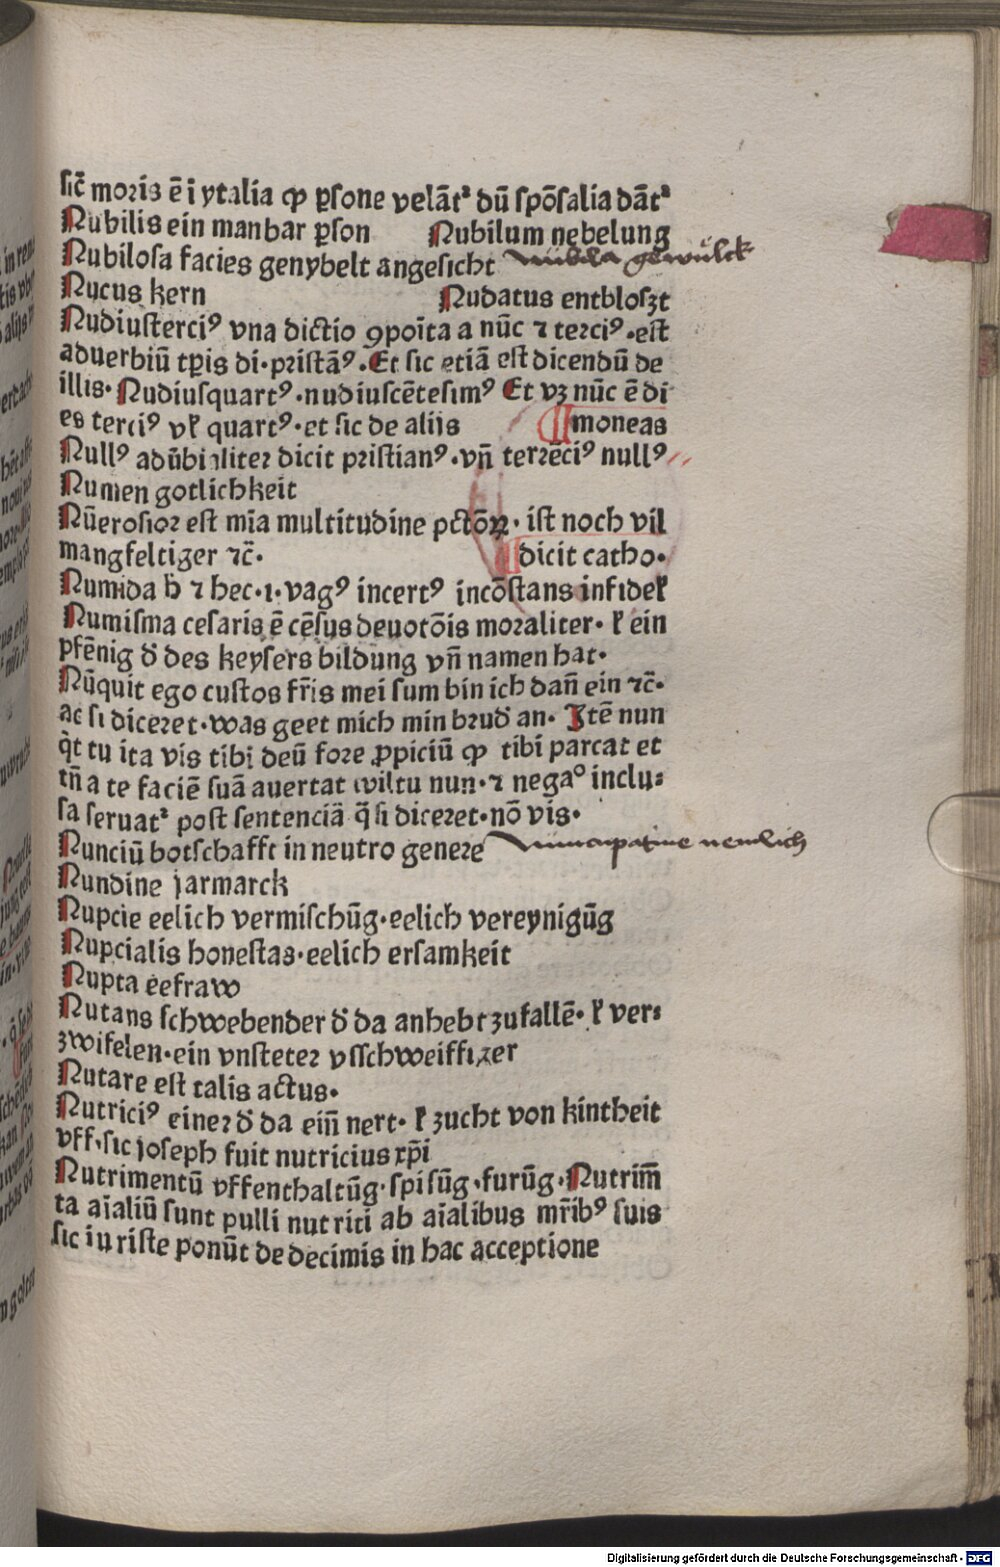 sic̄ moris ē i ytalia ꝙ ꝑsone velāt᷑ dū spōsalia dāt᷑
Nubilis ein manbar ꝑson Nubilum nebelung
Nubilosa facies genybelt angesicht nubila gewülck
Nucus kern Nudatus entbloszt
Nudiusterciꝰ vna dictio ꝯpoīta a nūc ⁊ terciꝰ·est
aduerbiū tꝑis di·pristāꝰ·Et sic etiā est dicendū de
illis·Nudiusquartꝰ·nudiuscētesimꝰ Et vꝫ nūc ē di
es terciꝰ vl̓ quartꝰ·et sic de alijs ¶moneas
Nullꝰ adūbialiter dicit pristianꝰ·vn̄ terrēciꝰ nullꝰ
Numen gotlichkeit
Nūerosior est mīa multitudine pctōꝝ· ist noch vil
mangfeltiger ⁊c̄· ¶dicit catho·
Numida h̄ ⁊ hec·i·vagꝰ incertꝰ incōstans infidel̓
Numisma cesaris ē cēsus deuotōis moraliter· l̓ ein
pfēnig d̄ des keysers bildung vn̄ namen hat·
Nūquit ego custos fr̄is mei sum bin ich dan̄ ein ⁊c̄·
ac si diceret·was geet mich min brud̄ an· Itē nun
q̇t tu ita vis tibi deū fore ꝓpiciū ꝙ tibi parcat et
tn̄ a te faciē suā auertat wiltu nun·⁊ negaº inclu⸗
sa seruat᷑ post sentenciā q̄ si diceret·nō vis·
Nunciū botschafft in neutro genere nuncupatiue nemlich
Nundine jarmarck
Nupcie eelich vermischūg·eelich vereynigūg
Nupcialis honestas·eelich ersamkeit
Nupta eefraw
Nutans schwebender d̄ da anhebt zufallē· l̓ ver⸗
zwifelen·ein vnsteter vsschweiffiger
Nutare est talis actus·
Nutriciꝰ einer d̄ da ein̄ nert· l̓ zucht von kintheit
vff·sic joseph fuit nutricius xp̄i
Nutrimentū vffenthaltūg·spisūg·furūg·Nutrim̄
ta aīaliū sunt pulli nutriti ab aīalibus mr̄ibꝰ suis
sic iuriste ponūt de decimis in hac acceptione
Digitalisierung gefördert durch die Deutsche Forschungsgemeinschaft - DFG